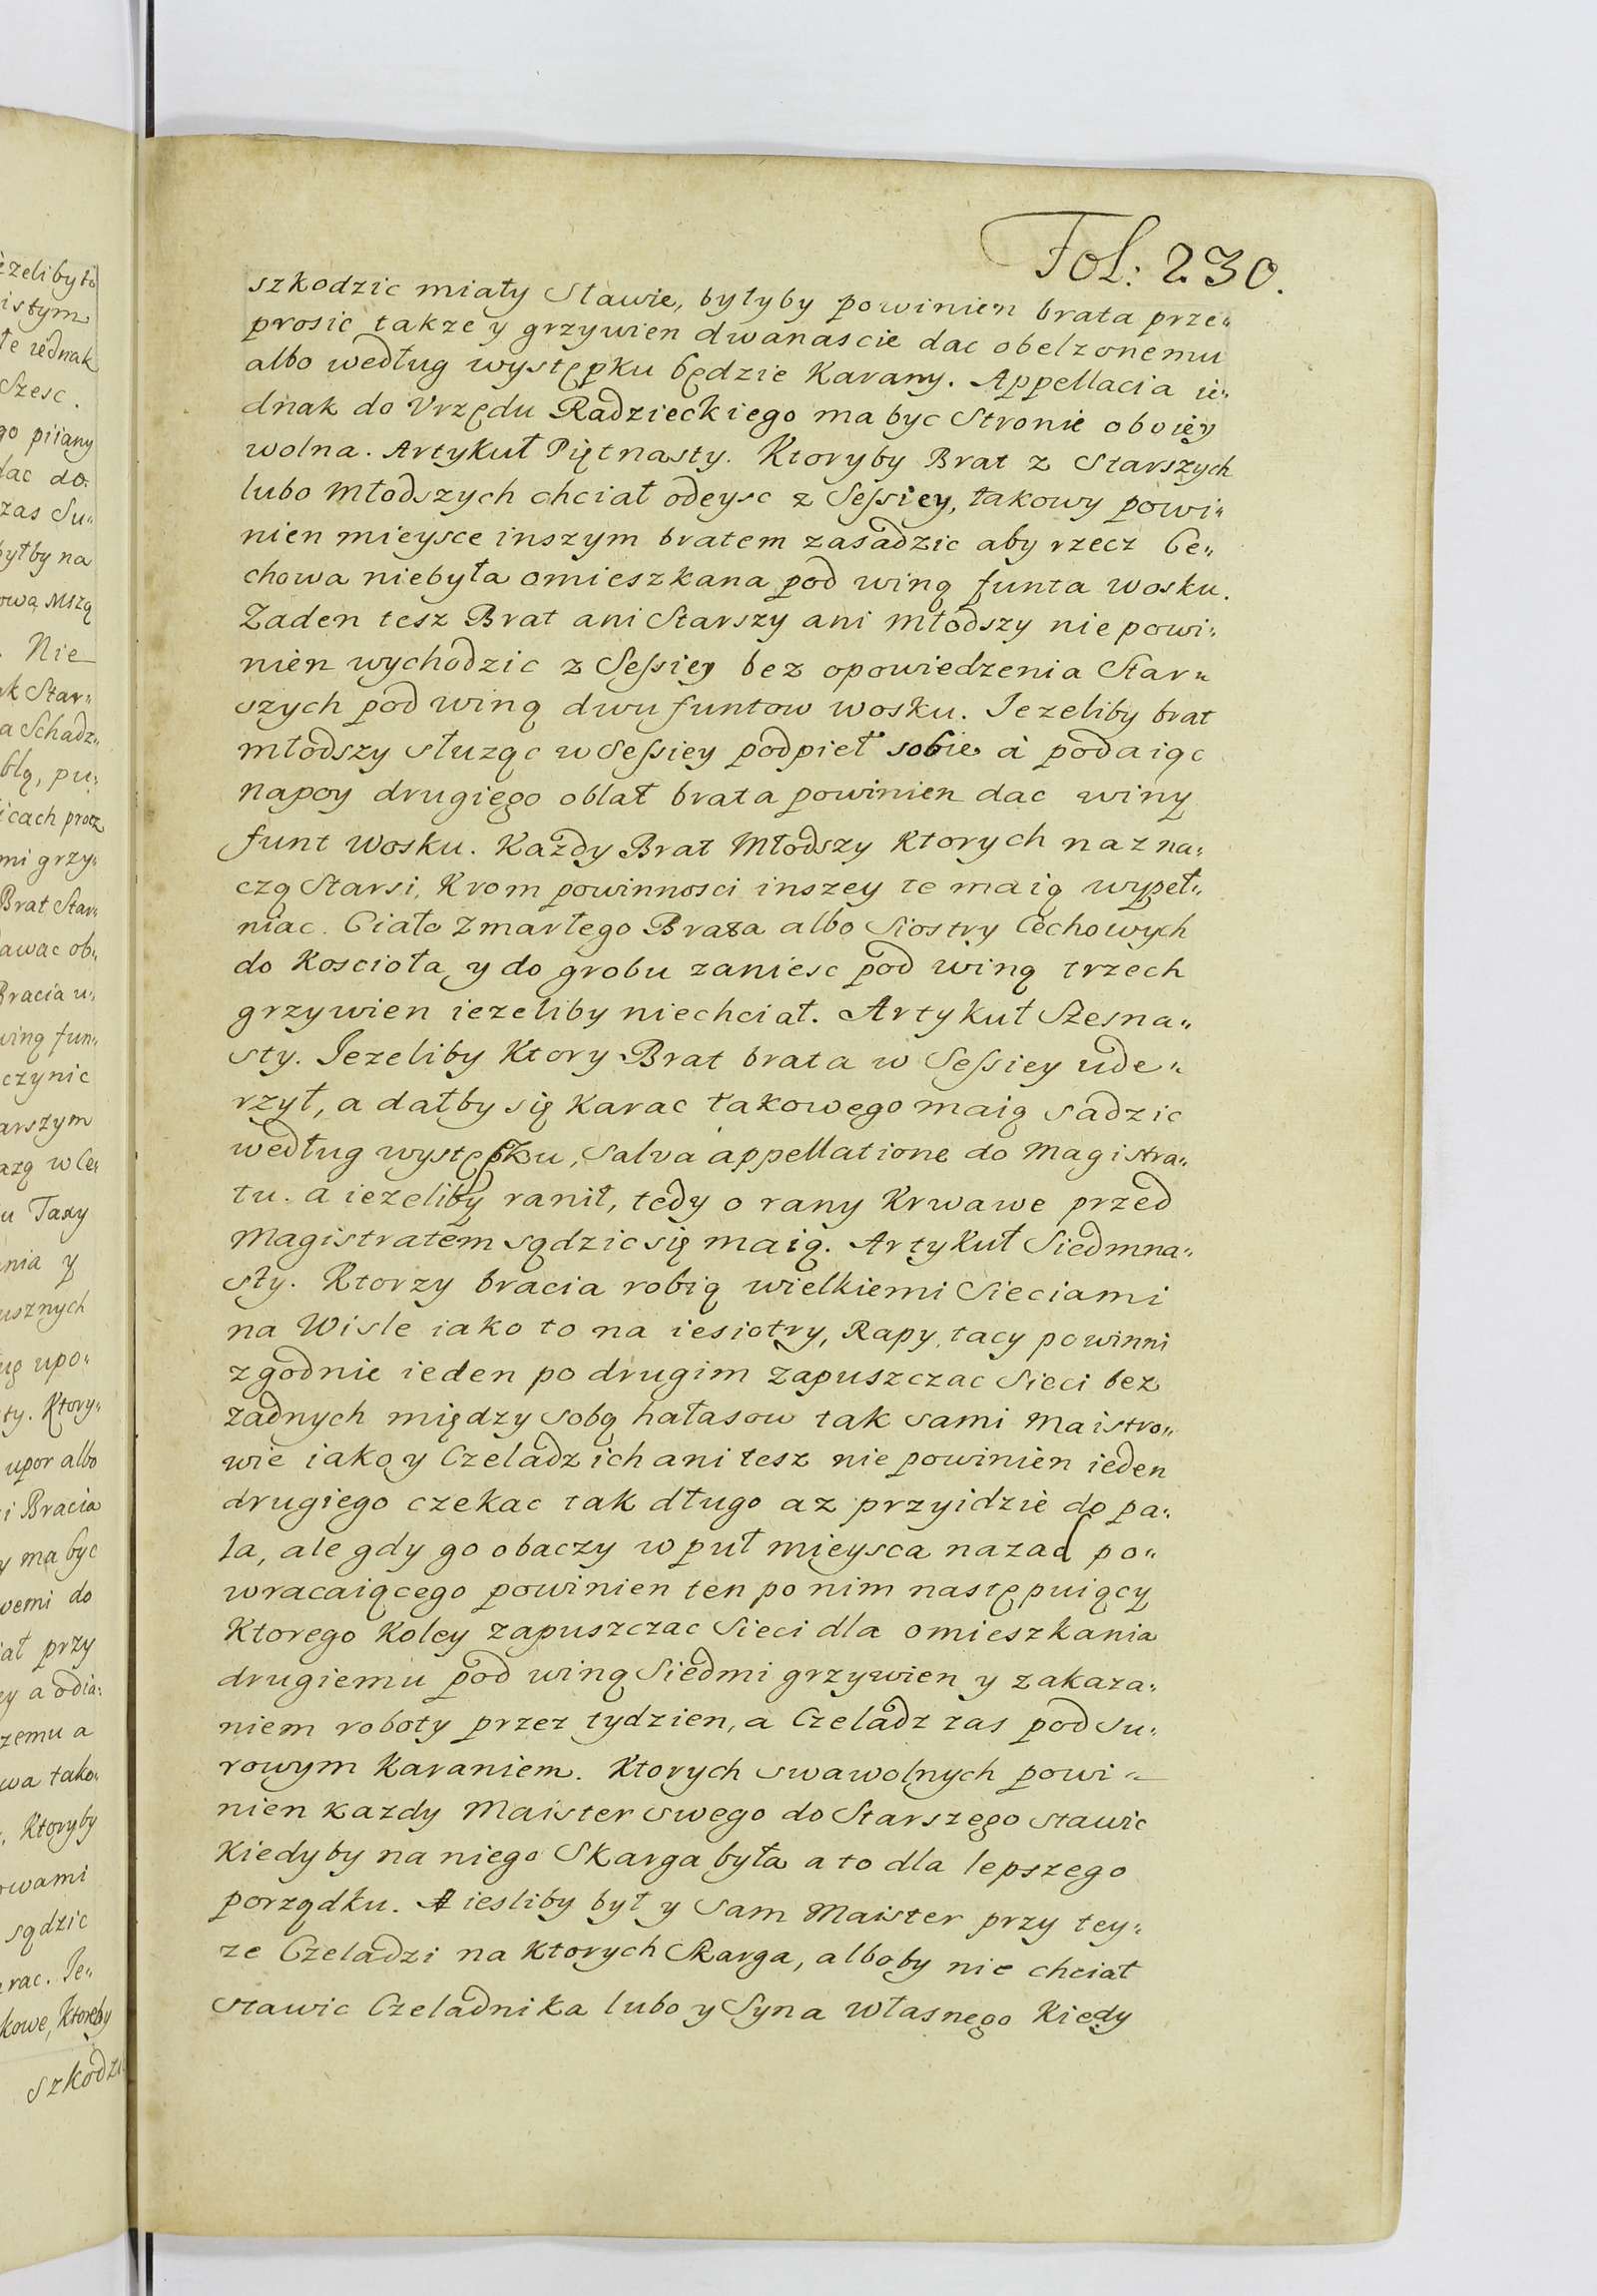 Fol: 230.
szkodzic miały Sławie, byłyby powinien brata prze„
prosic także y grzywien dwanascie dac obelzonemu
albo według występku będzie Karany. Appellacia ie„
dnak do Vrzędu Radzieckiego ma byc Stronie oboiey
wolna. Artykuł Piętnasty. Ktoryby Brat z Starszych
lubo Młodszych chciał odeysc z Sessiey, takowy powi„
nien mieysce inszym bratem zasadzic aby rzecz Ce„
chowa niebyła omieszkana pod winą funta wosku.
Zaden tesz Brat ani Starszy ani Młodszy nie powi„
nien wychodzic z Sessiey bez opowiedzenia Star„
szych pod winą dwu funtow wosku. Jezeliby brat
młodszy służąc w Sessiey podpieł sobie à podaiąc
napoy drugiego oblał brata powinien dac winy
funt wosku. Każdy Brat Młodszy Ktorych nazna„
czą Starsi, Krom powinnosci inszey te maią wypeł„
niac. Ciało Zmarłego Brata albo Siostry Cechowych
do Koscioła y do grobu zaniesc pod winą trzech
grzywien iezeliby niechciał. Artykuł Szesna„
sty. Jezeliby Ktory Brat brata w Sessiey ude„
rzył, a dałby się Karac takowego maią sadzic
według występku, salva appellatione do Magistra„
tu. a iezeliby ranił, tedy o rany Krwawe przed
Magistratem sądzic się maią. Artykuł Siedmna„
sty. Ktorzy bracia robią wielkiemi Sieciami
na Wisle iako to na iesiotry, Rapy, tacy powinni
zgodnie ieden po drugim zapuszczac Sieci bez
żadnych między sobą hałasow tak sami Maistro„
wie iako y Czeladz ich ani tesz nie powinien ieden
drugiego czekac tak długo az przyidzie do pa„
la, ale gdy go obaczy w puł mieysca nazad po„
wracaiącego powinien ten po nim następuiący
Ktorego Koley zapuszczac Sieci dla omieszkania
drugiemu pod winą Siedmi grzywien y zakaza„
niem roboty przez tydzien, a Czeladz zas pod su„
rowym Karaniem. Ktorych swawolnych powi„
nien kazdy Maister swego do Starszego stawic
Kiedyby na niego Skarga była a to dla lepszego
porządku. A iesliby był y sam Maister przy tey„
ze Czeladzi na Ktorych Skarga, alboby nie chciał
stawic Czeladnika lubo y Syna własnego Kiedy